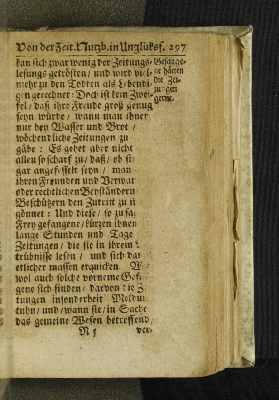 Von der Zeit. Nutzb. in Unglüksf. 297
kan sich zwar wenig der Zeitungs-
lesungs getrösten/ und wird viel-
mehr zu den Todten als Lebendi-
gen gerechnet: Doch ist kein Zwei-
fel/ daß ihre Freude groß genug
seyn würde/ wann man ihnen
nur bey Wasser und Brot/
wöchendliche Zeitungen zu
gäbe: Es gehet aber nicht
allen so scharf zu/ daß/ ob si
gar angefesselt seyn/ man
ihren Freunden und Verwa
oder rechtlichen Beyständern
Beschützern den Zutritt zu i
gönnet: Und diese/ so zu sa
Frey gefangene/ kürzen ihnen
lange Stunden und Tage
Zeitungen/ die sie in ihrem
trübnisse lesen/ und sich dar
etlicher massen erquicken
wol auch solche vorneme Ge
gene sich finden/ davon die Z
tungen insonderheit Meldun
tuhn/ und/ wann sie/ in Sache
das gemeine Wesen betreffend/
N 5 ver-
Gefange-
ne hätten
die Zei-
tungen
gerne.